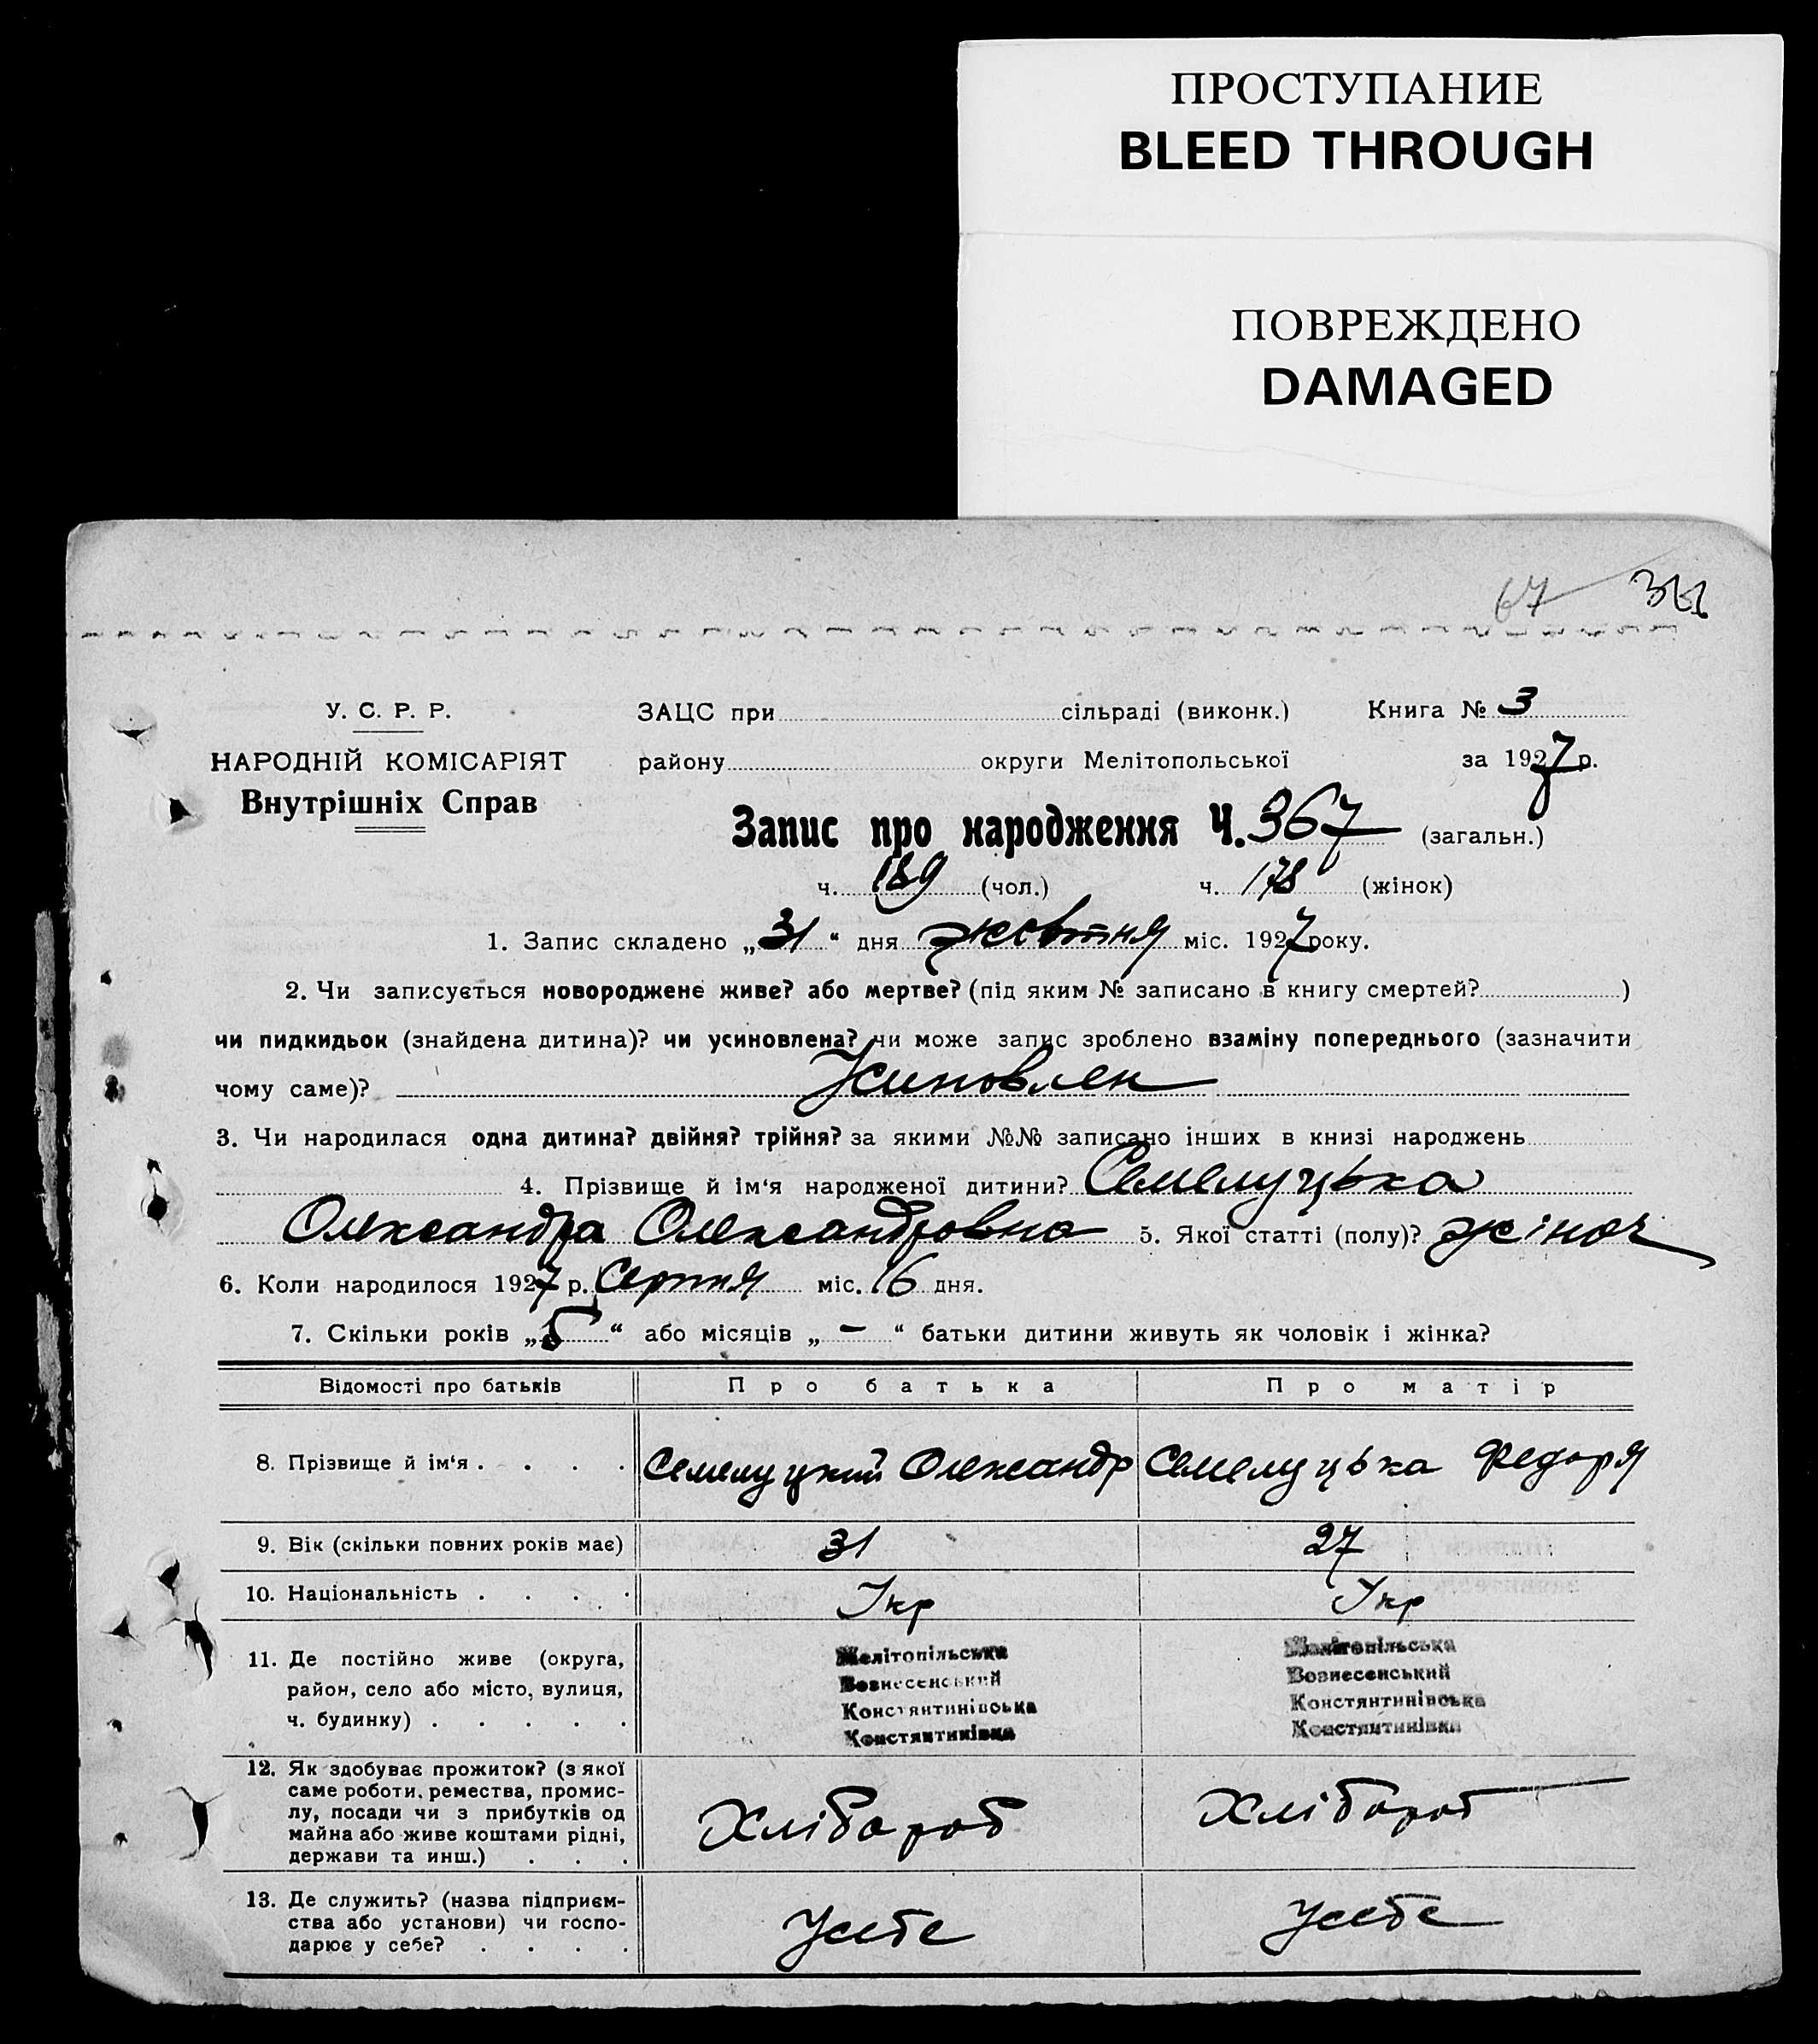 ПРОСТУПАНИЕ
BLEED THROUGH
ПОВРЕЖДЕНО
DAMAGED
67
У. С. Р. Р. ЗАЦС при сільраді (виконк.) Книга № 3
НАРОДНІЙ КОМІСАРІЯТ району округи Мелітопольської за 1927 р.
Внутрішніх Справ
Запис про народження Ч. 367 (загальн.)
ч. 189 (чол.) ч. 178 (жінок)
1. Запис складено „31“ дня жовтня міс. 1927 року.
2. Чи записується новороджене живе? або мертве? (під яким № записано в книгу смертей? )
чи пидкидьок (знайдена дитина)? чи усиновлена? чи може запис зроблено взаміну попереднього (зазначити
чому саме)? Усиновлен
3. Чи народилася одна дитина? двійня? трійня? за якими №№ записано інших в книзі народжень
4. Прізвище й ім‘я народженої дитини? Семелуцька
Олександра Олександровна 5. Якої статті (полу)? жіноч
6. Коли народилося 1927 р. Серпня міс. 16 дня.
7. Скільки років „5“ або місяців „-“ батьки дитини живуть як чоловік і жінка?
Відомості про батьків Про батька Про матір
8. Прізвище й ім‘я . . . . Семелуцкий Олександр Семелуцька Федоря
9. Вік (скільки повних років має) 31 27
10. Національність . . . . Укр Укр
11. Де постійно живе (округа, Мелітопільська Мелітопільська
район, село або місто, вулиця, Вознесенський Вознесенський
ч. будинку) . . . . . Констянтинівська Констянтинівська
Констянтинівка Констянтинівка
12. Як здобуває прожиток? (з якої
саме роботи, ремества, промис-
лу, посади чи з прибутків од
майна або живе коштами рідні, Хлібороб Хлібороб
держави та инш.) . . .
13. Де служить? (назва підприєм-
ства або установи) чи госпо- Усебе Усебе
дарює у себе? . . . .